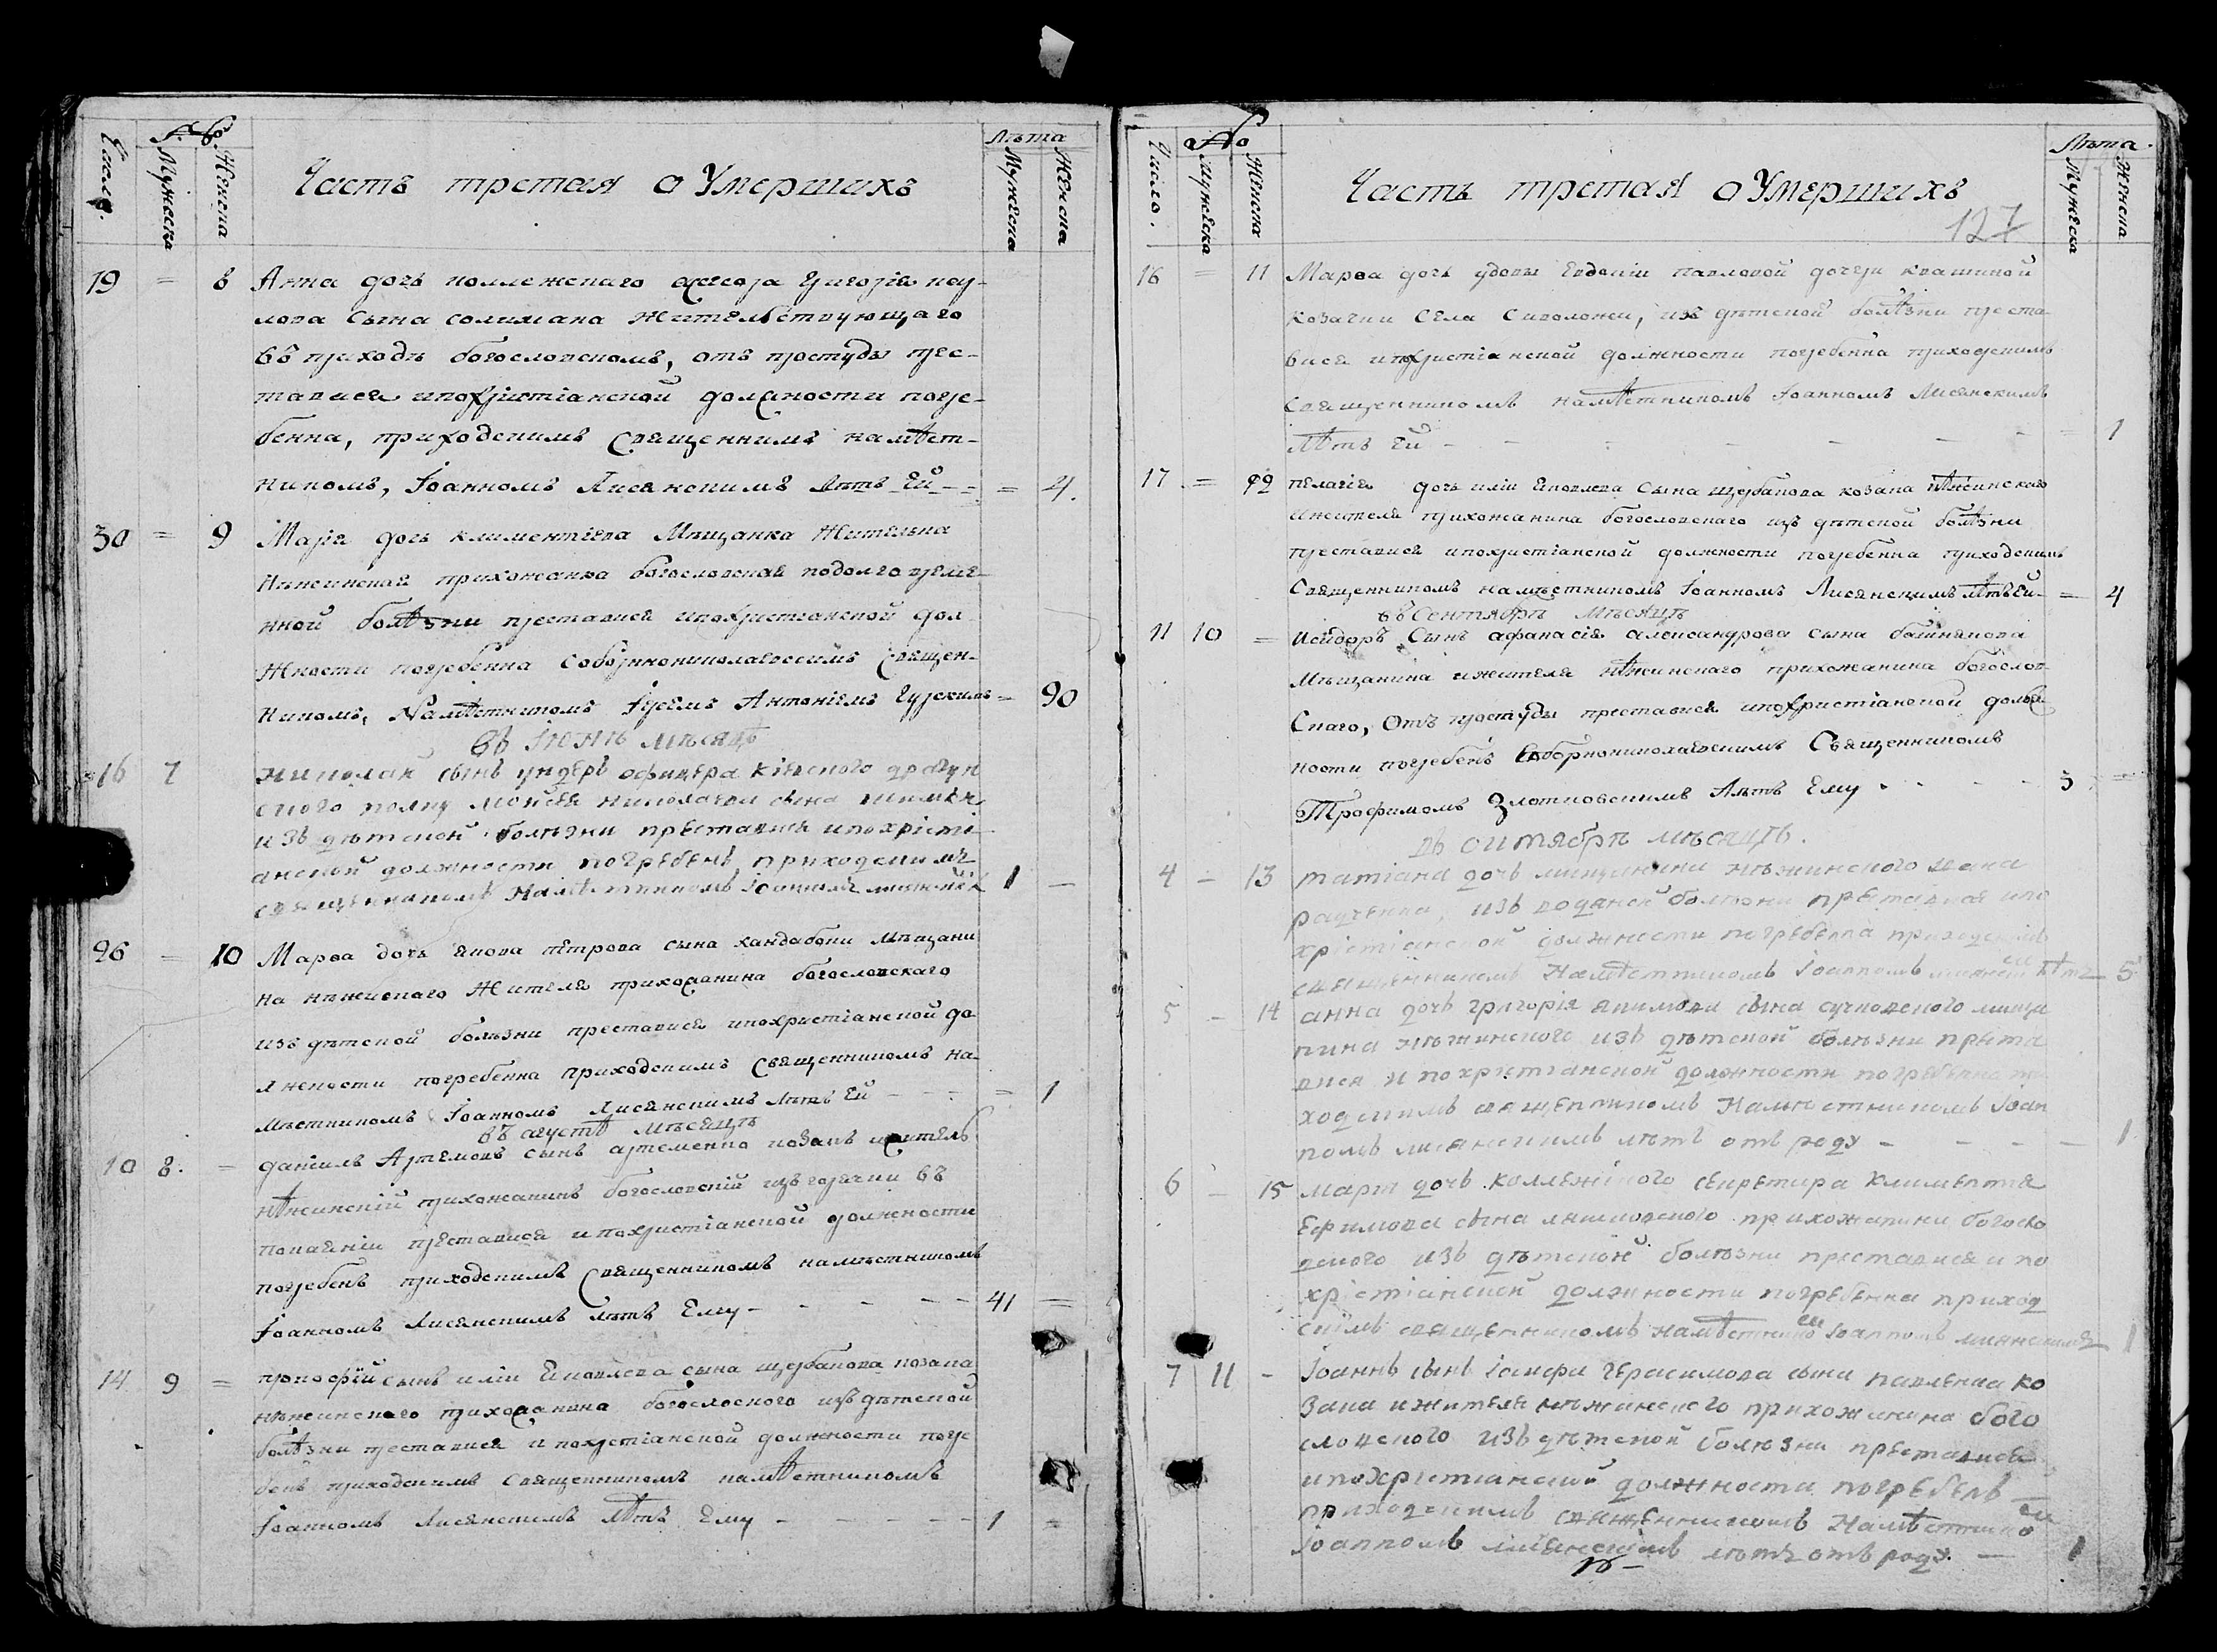 Число.
№
Мужеска
Женска
Часть третая о Умершихъ
Лѣта
Мужеска
Женска
19 = 8 Анна дочь коллежскаго Григорія пау-
лова сына солимана жительствующаго
въ приходѣ богословскомъ, отъ простуды прес-
тависѧ ипохристіанской должности погре-
бенна, приходскимъ священникомъ намѣст-
никомъ, Іоанномъ Лисянскимъ лѣтъ Ей - - = 4.
30 = 9 Марія дочь климентіева Мѣщанка Жителька
Нѣжинская прихожанка богословская подолговреме-
нной болѣзни преставися ипохристіанской дол
жности погребенна соборнониколаевскимъ священ-
никомъ, Намѣстникомъ Іереемъ Антоніемъ = 90
въ Іюнѣ мѣсяцѣ
16 7 николай сынъ ундеръ офицера кіевского драгун
ского полку мойсея николаева сына
изъ дѣтской болѣзни преставися ипохрісті
анской должности погребенъ приходскимъ
священникомъ Намѣстникомъ Іоанномъ 1 —
26 — 10 Марѳа дочь якова петрова сына хандабони Мѣщани
на нѣжинскаго Жителя прихожанина богословскаго
изъ дѣтской болѣзни преставися ипохристіанской до
лжности погребенна приходскимъ священникомъ на-
мѣстникомъ Іоанномъ Лисянскимъ лѣтъ Ей - - - = 1
въ августѣ мѣсяцѣ
10 8. = даніилъ Артемовъ сынъ артеменко козакъ житель
нѣжинскій прихожанинъ богословскій изъ горячки въ
покаяніи преставися ипохристіанской должности
погребенъ приходскимъ Священникомъ намѣстникомъ
Іоанномъ Лисянскимъ лѣтъ Ему - - - - - 41 =
14 9 = прокофій сынъ иліи Яковлева сына щербакова козака
нѣжинскаго прихожанина изъ дѣтской
болѣзни преставися ипохрстіанской должности погре
бенъ приходскимъ священникомъ намѣстникомъ
Іоанномъ Лисянскимъ лѣтъ Ему - - - - - 1 =
Число.
№
Мужеска
Женска
Часть третая о Умершихъ
127
Лѣта.
Мужеска
Женска
16 = 11 Марѳа дочь удовы Евдокіи павловой дочери квашиной
козачки Села Сиволожи, изъ дѣтской болѣзни преста
вися ипохристіанской должности погребенна приходскимъ
Священникомъ намѣстникомъ Іоанномъ Лисянскимъ
лѣтъ Ей - - - - - - - = 1
17 = 12 пелагія дочь иліи Яковлева Сына щербакова козака нѣжинскаго
ижителя прихожанина богословскаго изъ дѣтской болѣзни
преставися ипохристіанской должности погребенна приходскимъ
Священникомъ намѣстникомъ Іоанномъ Лисянскимъ лѣтъ Ей - = 4
въ Сентябрѣ Мѣсяцѣ
11 10 = Исидоръ Сынъ афанасія александрова сына
Мѣщанина ижителя нѣжинскаго прихожанина богослов
скаго, Отъ простуды преставися ипохристіанской долж
ности погребенъ Соборнониколаевскимъ Священникомъ
Трофимомъ Злотковскимъ Лѣтъ Ему - - - - 3 =
въ октябрѣ мѣсяцѣ.
4 - 13 татіана дочь мищанина нѣжинского
изъ водяной болѣзни преставися ипо
хрістіанской должности погребенна приходскимъ
священникомъ Намѣстникомъ Іоанномъ лѣтъ 5
5 - 14 анна дочь григорія якимова сына сучковского мища
нина нѣжинского изъ дѣтской болѣзни преста
вися ипохристианской должности погребенна при
ходскимъ священникомъ Намѣстникомъ Іоан
номъ лисянскимъ лѣтъ отъ роду - - - - 1
6 - 15 Марія дочь коллежского секретаря климентия
Ефимова сына прихожанина богосло
вского изъ дѣтской болѣзни преставися ипо
хрістіанской должности погребенна приход
скимъ священникомъ намѣстникомъ Іоанномъ лисянскимъ 1
7 11 - Іоаннъ сынъ Герасимова сына павленка ко
зака ижителя нѣжинского прихожанина бого
словского изъ дѣтской болѣзни преставися
ипохристианской должности погребенъ
приходскимъ священникомъ Намѣстнико
Іоанномъ лисянскимъ лѣтъ отъ роду. — 1